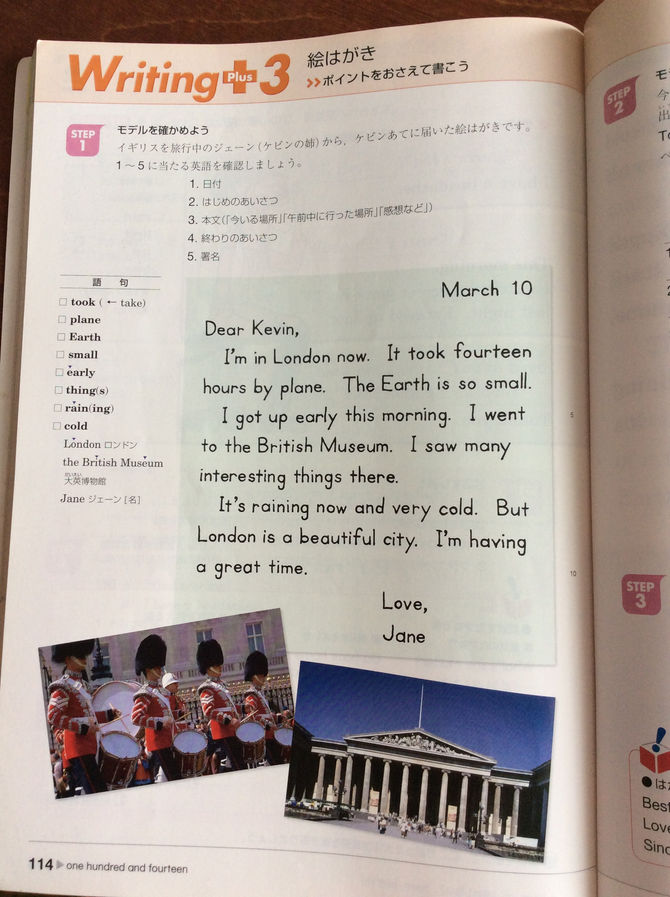 Writing Plus 3
絵はがき
>>ポイントをおさえて書こう
STEP 1
モデルを確かめよう
イギリスを旅行中のジェーン(ケビンの姉)から,ケビンあてに届いた絵はがきです。
1〜5に当たる英語を確認しましょう。
1. 日付
2. はじめのあいさつ
3. 本文(「今いる場所」「午前中に行った場所」「感想など」)
4. 終わりのあいさつ
5. 署名
語 句
□ took ( ← take)
□ plane
□ Earth
□ small
□ early
□ thing(s)
□ rain(ing)
□ cold
London ロンドン
the British Museum
大英博物館
だいえい
Jane ジェーン[名]
March 10
Dear Kevin,
I'm in London now. It took fourteen
hours by plane. The Earth is so small.
I got up early this morning. I went
5
to the British Museum. I saw many
interesting things there.
It's raining now and very cold. But
London is a beautiful city. I'm having
10
a great time.
Love,
Jane
114 ▶ one hundred and fourteen
STEP 2
STEP 3
Best
Love
Sinc